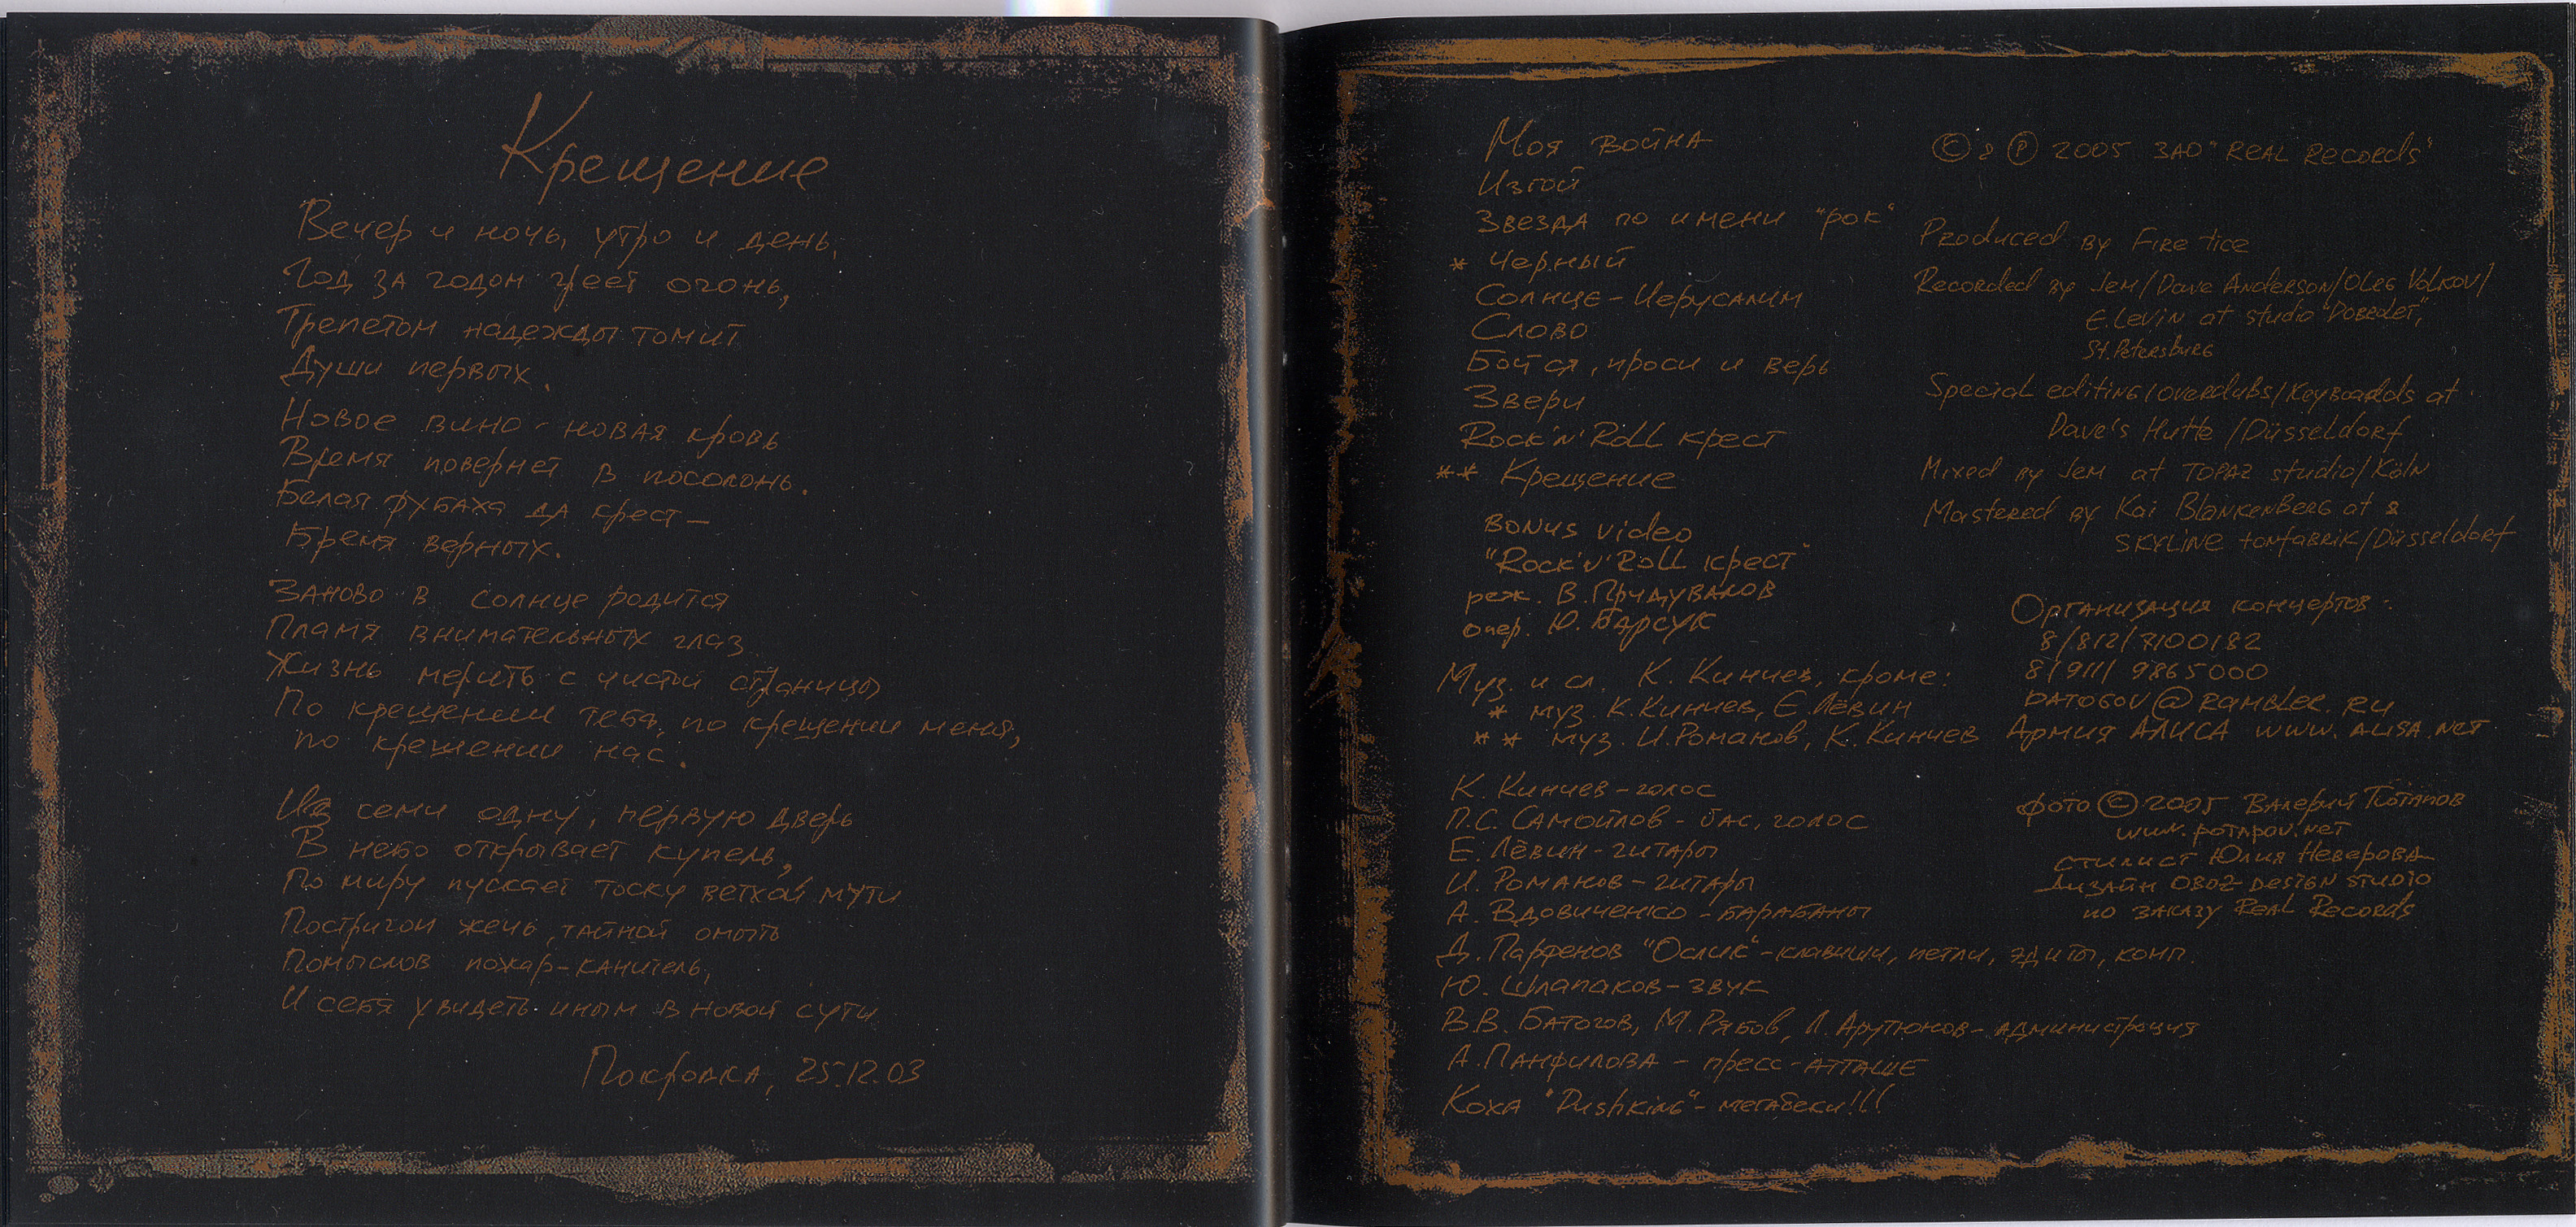 Крещение
Вечер и ночь, утро и день,
Год за годом греет огонь,
Трепетом надежды томит
Души первых.
Новое вино - новая кровь
Время повернет в посолонь.
Белая рубаха да крест-
Бремя верных.
Заново в солнце родится
Пламя внимательных глаз
Жизнь мерить с чистой страницы
По крещении тебя, по крещении меня,
по крещении нас.
Из семи одну, первую дверь
В небо открывает купель,
По миру пускает тоску ветхой мути
Постригом жечь, тайной омыть
Помыслов пожар-канитель,
И себя увидеть иным в новой сути
Покровка, 25.12.03
Моя война
Изгой
Звезда по имени "рок"
* Черный
Солнце-Иерусалим
Слово
Бойся, проси и верь
Звери
Rock'n'Roll крест
** Крещение
Bonus video
"Rock'n'Roll крест"
реж. В.Придувалов
опер. Ю.Барсук
Муз. и сл. К. Кинчев, кроме:
* муз. К.Кинчев, Е.Лёвин
** муз. И.Романов, К.Кинчев
К. Кинчев-голос
П.С. Самойлов-бас, голос
Е. Лёвин-гитары
И. Романов-гитары
А. Вдовиченко-барабаны
Д. Парфенов "Ослик"-клавиши, петли, эдиты, комп.
Ю. Шлапаков-звук
В.В. Батогов, М.Рябов, Л.Арутюнов-администрация
А.Панфилова - пресс-атташе
Коха "Pushking"-мегабеки!!!
© & ℗ 2005 ЗАО "Real Records"
Produced by Fire + ice
Recorded by Jem/Dave Anderson/Oleg Volkov/
E.Levin at studio "Dobrolet",
St.Petersburg
Special editing/overdubs/keyboards at
Dave's Hutte/Düsseldorf
Mixed by Jem at TOPAZ studio/Köln
Mastered by Kai Blankenberg at &
SKYLINE tonfabrik/Düsseldorf
Организация концертов:
8/812/7100182
8/911/9865000
batogov@rambler.ru
Армия АЛИСА www.alisa.net
фото © 2005 Валерий Потапов
www.potapov.net
стилист Юлия Неверова
дизайн OBOZ DESIGN STUDIO
по заказу Real Records